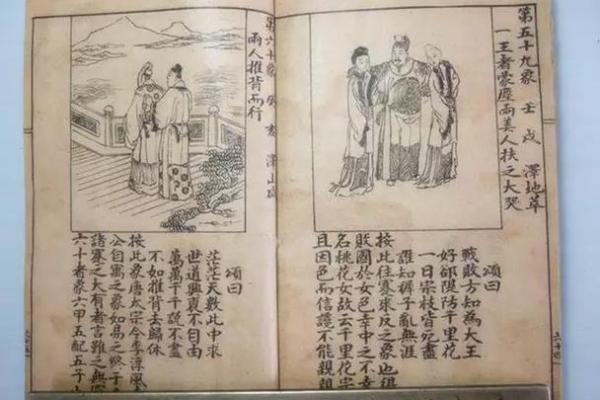 第五十九象 壬戌 澤地萃
一王者蒙塵兩美人扶之大哭
頌曰
戰敗方知為大王
好邵隄防千里花
一日宗枝皆宛盡
誰知褲子亂無涯
按此往蹇來反之象也
敗國於女色幸中之不幸
名桃花女故云千里花宗
且因色而信讒不能親親
第六十象 亥 澤山
兩人推背而行
頌曰
茫茫天數此中求
世道興衰不自由
萬萬千千說不盡
不如推背去歸休
按此象唐太宗令李淳風
公自寓之象如易之終于
諸蹇之大有者言雖之無
六十者象六甲五配五子